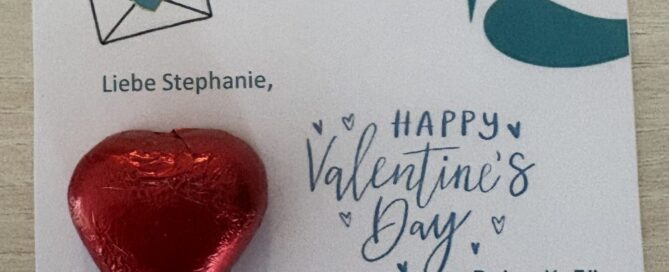 Liebe Stephanie,
HAPPY
Valentine's
Day